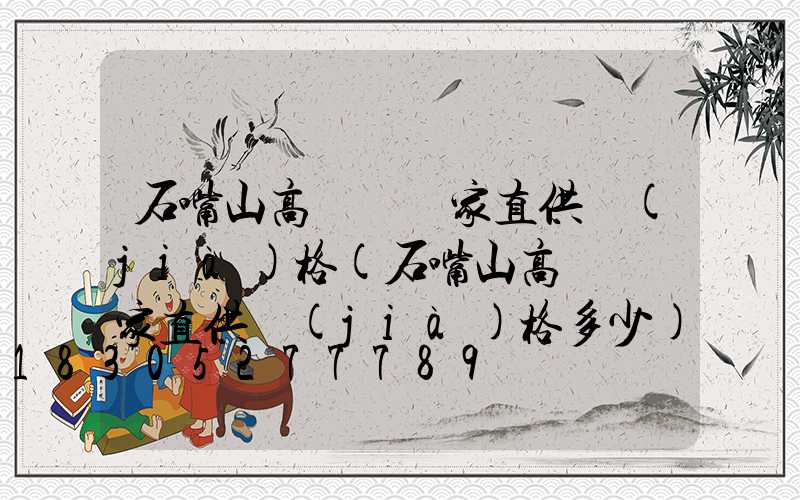 石嘴山高 家直供 (
jià)格(石嘴山高
家直供 (jià)格多少)
18305277789